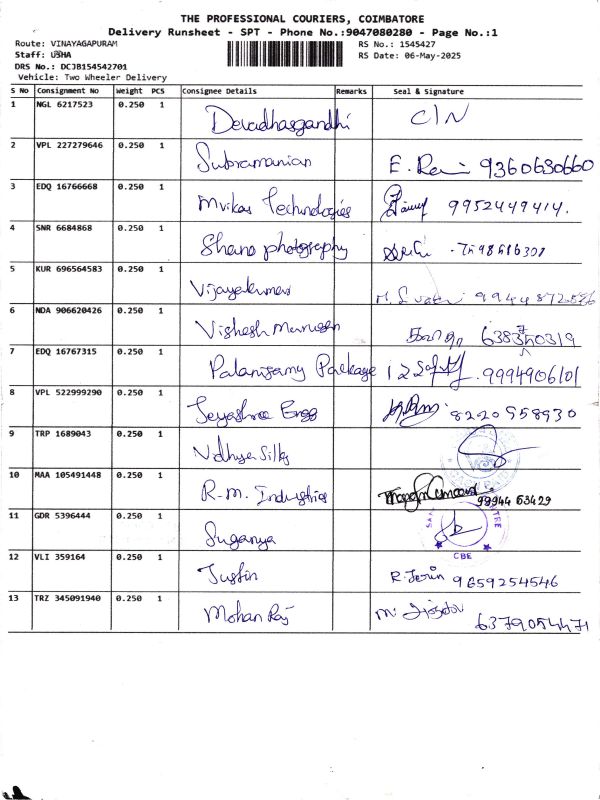 THE PROFESSIONAL COURIERS, COIMBATORE
Delivery Runsheet - SPT - Phone No.:9047080280 - Page No.:1
Route: VINAYAGAPURAM
RS No.: 1545427
Staff: USHA
RS Date: 06-May-2025
DRS No.: DCJB154542701
Vehicle: Two Wheeler Delivery
S No Consignment No Weight PCS Consignee Details Remarks Seal & Signature
1 NGL 6217523 0.250 1 Devadhasgandhi C/N
2 VPL 227279646 0.250 1 Subramanian E. Ravi 9360630660
3 EDQ 16766668 0.250 1 Mvikas Technologies 9952449414.
4 SNR 6684868 0.250 1 Shano photography
5 KUR 696564583 0.250 1 Vijayakumar
6 NDA 906620426 0.250 1 Vishesh Murugan
7 EDQ 16767315 0.250 1 Palanisamy Package 9994906101
8 VPL 522999290 0.250 1 Jeyashree Engg 8220558930
9 TRP 1689043 0.250 1 Vidhya Silks
10 MAA 105491448 0.250 1 R.m. Industries 98944 63429
11 GDR 5396444 0.250 1 Suganya
CBE
12 VLI 359164 0.250 1 Justin R. Jerin 9659254546
13 TRZ 345091940 0.250 1 Mohan Raj 6379054471